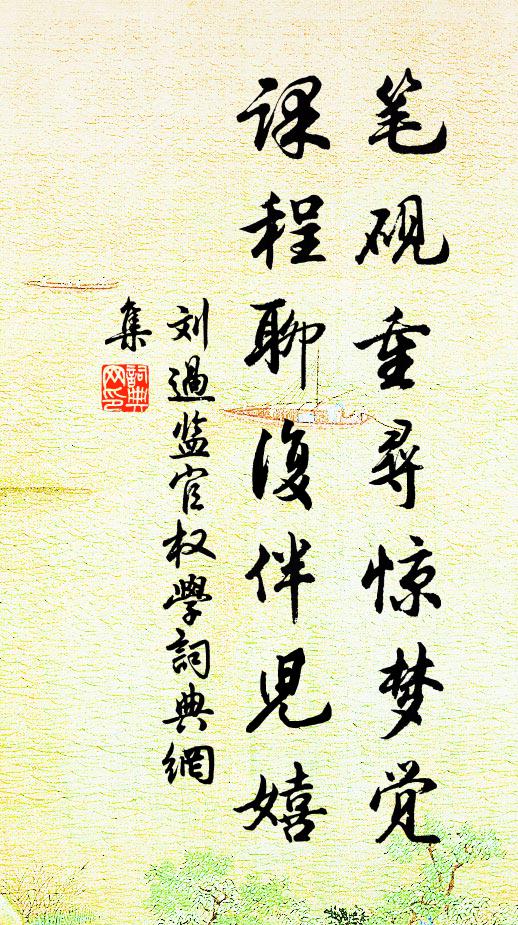 笔砚重尋惊梦觉
课程聊復伴児嬉
刘過监官权学詞典網
集
詞典
网印